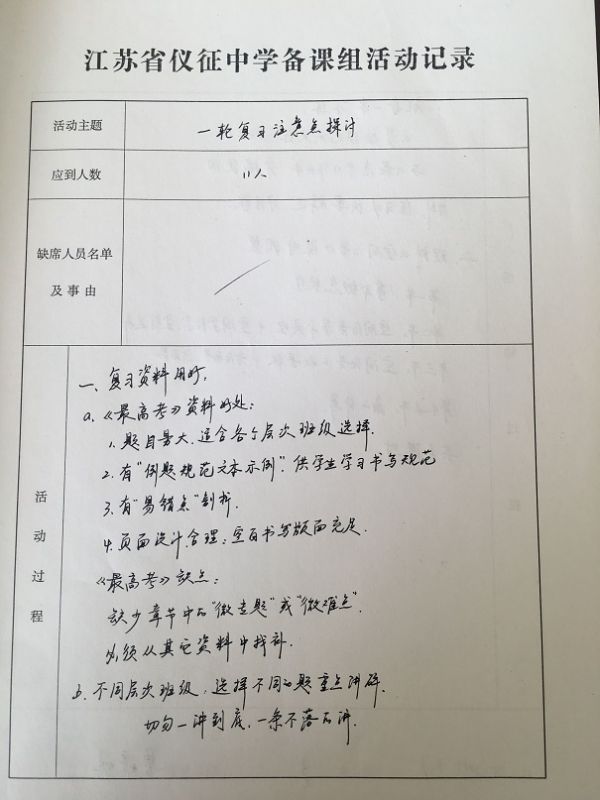 江苏省仪征中学备课组活动记录
活动主题
一轮复习注意点探讨
应到人数
11人
缺席人员名单
及事由
活动过程
一、复习资料用时,
a.《最高考》资料好处:
1. 题目量大、适合各个层次班级选择.
2. 有“例题规范文本示例”.供学生学习书写规范
3. 有“易错点”剖析.
4. 页面设计合理:空白书写版面充足.
《最高考》缺点:
缺少章节中的“微专题”或“微难点”.
必须从其它资料中找补.
b. 不同层次班级,选择不同的题重点讲解.
切勿一讲到底、一条不落的讲.